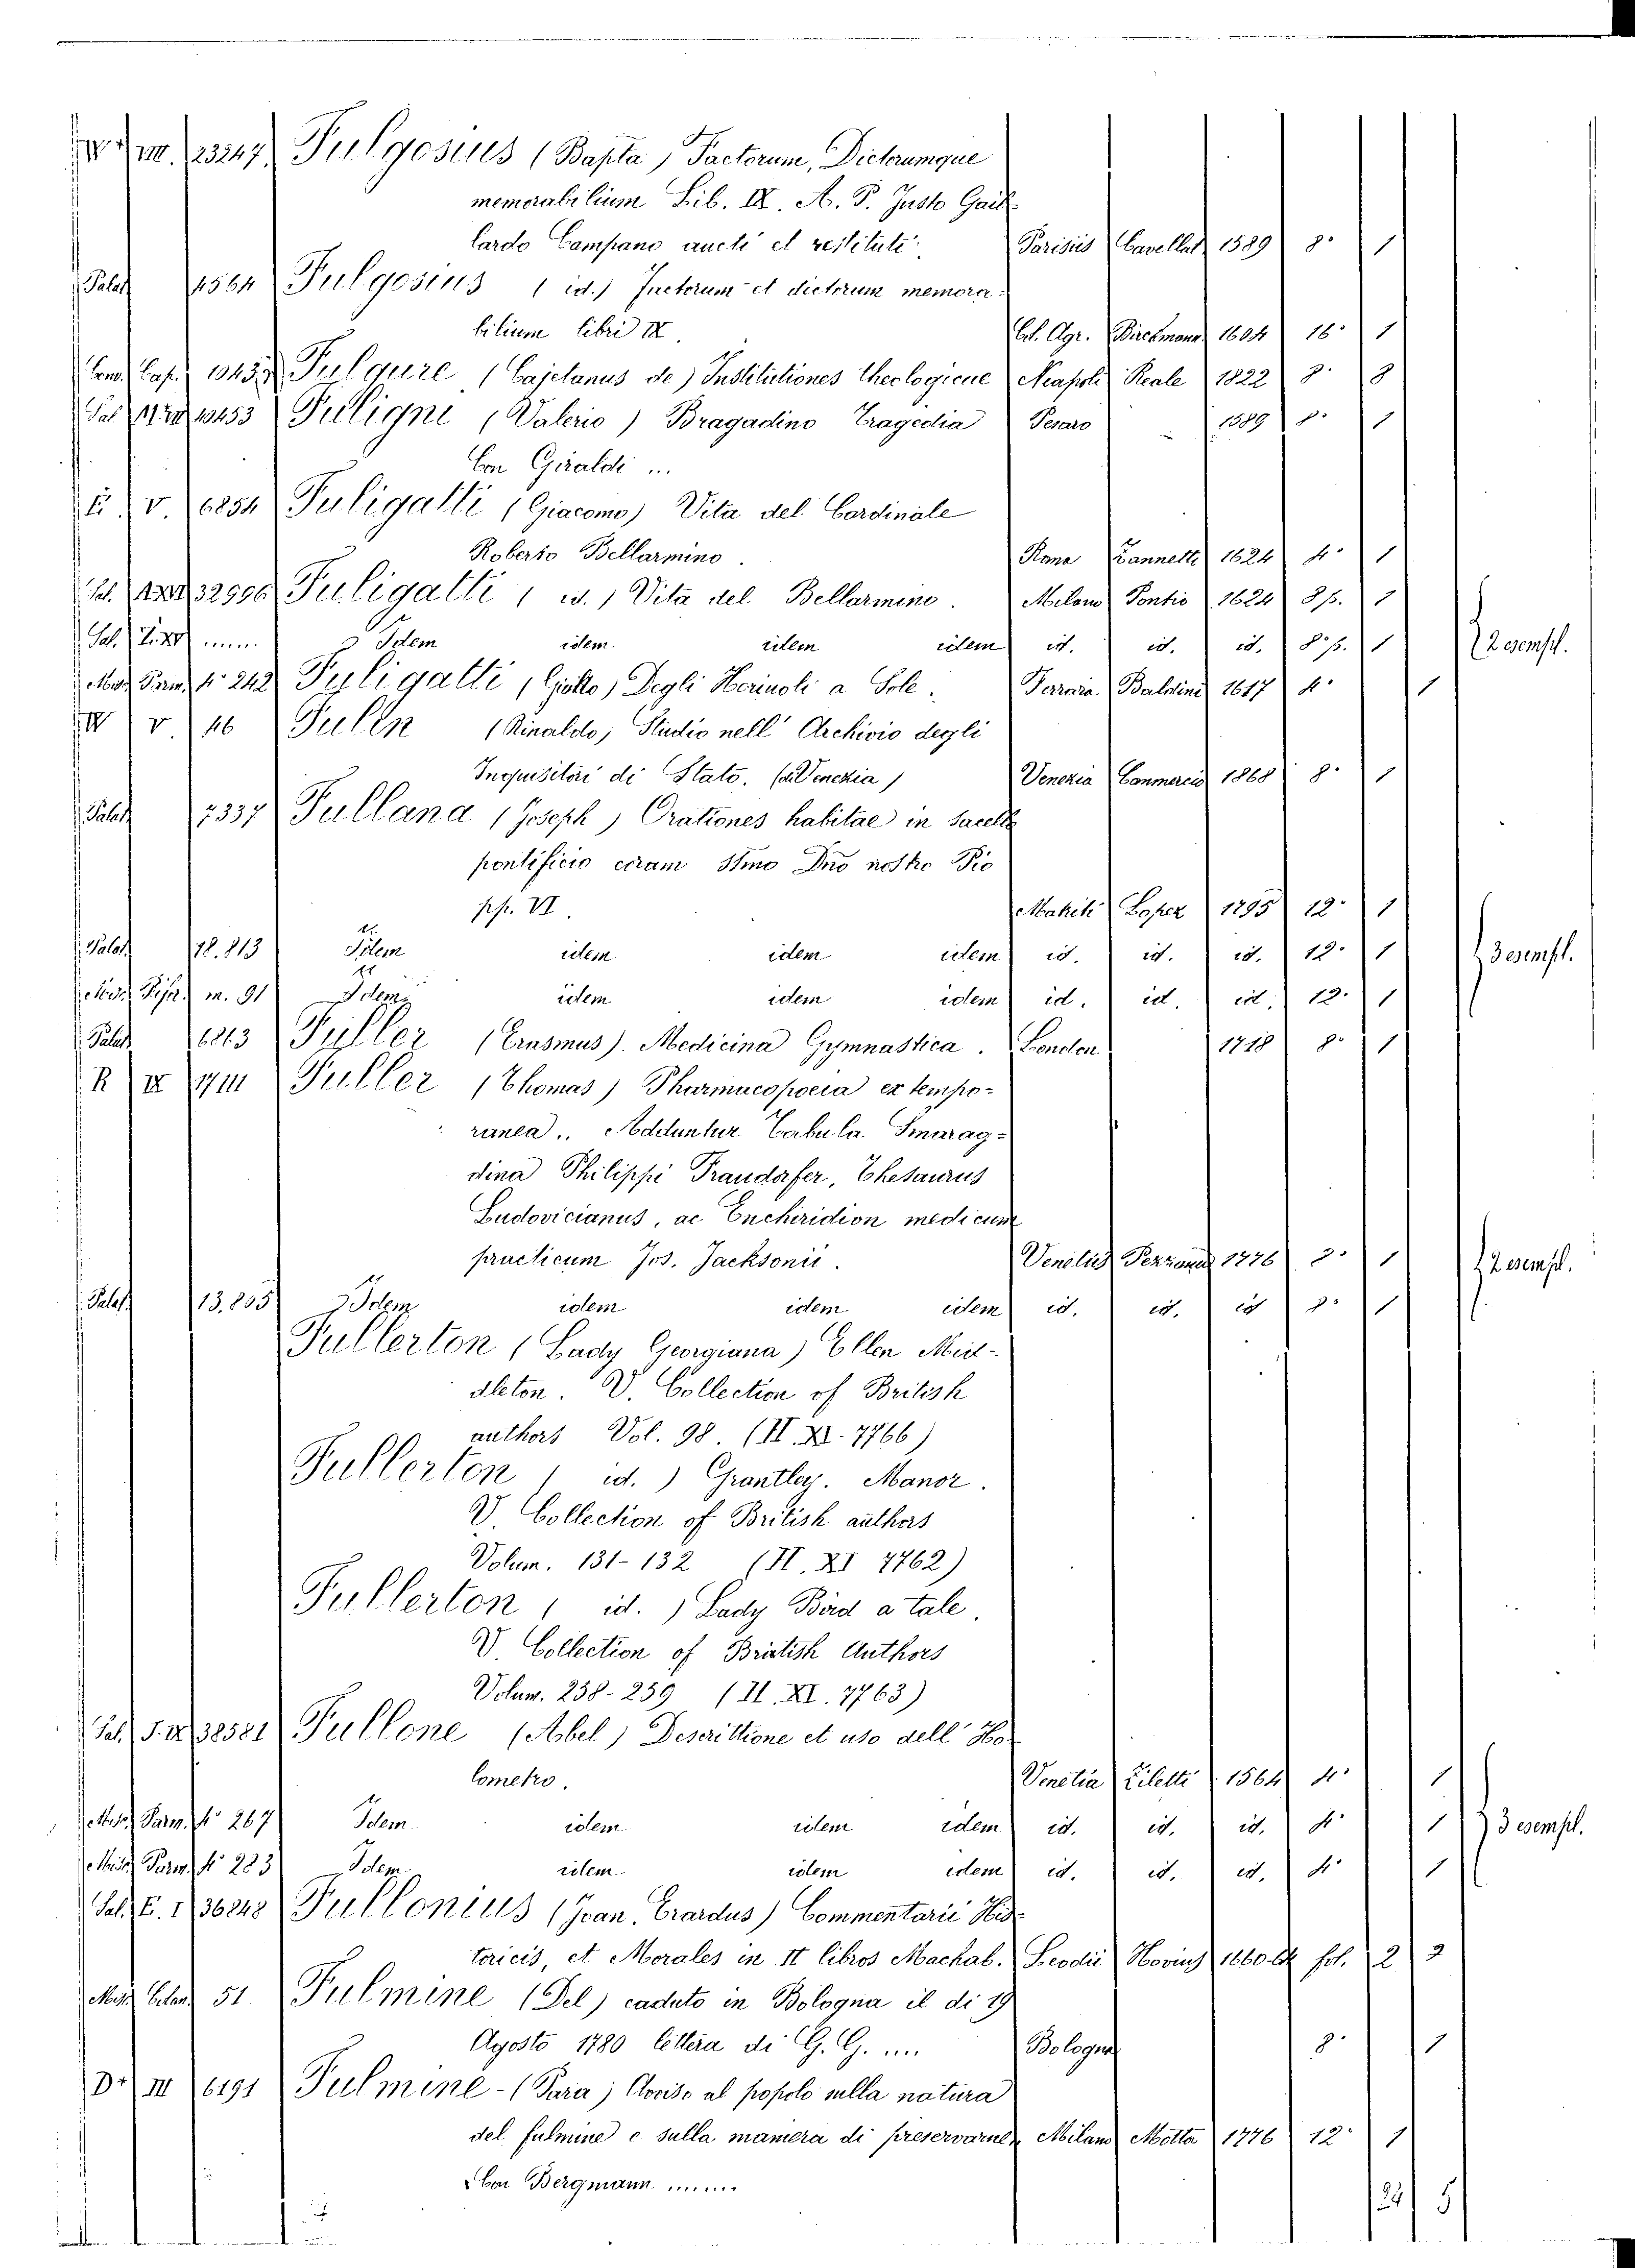 VIII. 23247 Fulgosius (Bapta) Factorum, Dictorumque
memorabilium Lib. IX. A. P. Justo Gail-
lardo Campano aucti et restituti. Parisiis Cavellat 1589 8° 1
Palat 4564 Fulgosius (id.) Factorum et dictorum memora-
bilium libri IX. Col. Agr. Birckmann 1604 16° 1
Cap. 10437 Fulgure (Cajetanus de) Institutiones theologicae Neapoli Reale 1822 8° 8
10453 Fuligni (Valerio) Bragadino Tragedia Pesaro 1589 8° 1
Con Giraldi ...
V. 6854 Fuligatti (Giacomo) Vita del Cardinale
Roberto Bellarmino. Roma Zannetti 1624 4° 1
Fuligatti (id.) Vita del Bellarmino. Milano Pontio 1624 8 p. 1
Idem idem idem idem id. id. id. 8° p. 1 2 esempl.
242 Fuligatti (Giulio) Degli Horiuoli a Sole. Ferrara Baldini 1617 4° 1
IV V. 46 Fulin (Rinaldo) Studio nell' Archivio degli
Inquisitori di Stato. (a Venezia) Venezia Commercio 1868 8° 1
Palat 7337 Fulland (Joseph) Orationes habitae in sacello
pontificio coram Smo Dno nostro Pio
pp. VI. Matriti Lopez 1795 12° 1
Palat 18.813 Idem idem idem idem id. id. id. 12° 1 3 esempl.
m. 91 Idem idem idem idem id. id. id. 12° 1
Palat 6863 Fuller (Erasmus). Medicina Gymnastica. London 1718 8° 1
R IX Fuller (Thomas) Pharmacopoeia extempo-
ranea.. Adduntur Tabula Smarag-
dina Philippi Fraudorfer, Thesaurus
Ludovicianus, ac Enchiridion medicum
practicum Jos. Jacksonii. Venetiis Pezzana 1776 8° 1 2 esempl.
Palat. 13.805 Idem idem idem idem id. id. id 8° 1
Fullerton (Lady Georgiana) Ellen Mid-
dleton. V. Collection of British
authors Vol. 98. (II. XI. 7766)
Fullerton (id.) Grantley. Manor.
V. Collection of British authors
Volum. 131-132 (II. XI 7762)
Fullerton (id.) Lady Bird a tale.
V. Collection of British Authors
Volum. 238-239 (II. XI. 7763)
38581 Fullone (Abel) Descrittione et uso dell' Ho-
lometro. Venetia Ziletti 1564 4° 1
Parm. 4° 267 Idem idem idem idem id. id. id. 4° 1 3 esempl.
Parm. 4° 283 Idem idem idem idem id. id. id. 4° 1
36248 Fullonius (Joan. Erardus) Commentarii His-
toricis, et Morales in II libros Machab. Leodii Hovius fol. 2 2
51. Fulmine (Del) caduto in Bologna il dì 19
Agosto 1780 lettera di G. G. .... Bologna 8° 1
III 6191 Fulmine - (Para) Avviso al popolo sulla natura
del fulmine e sulla maniera di preservarne Milano Motta 1776 12° 1
Con Bergmann ......
24 5